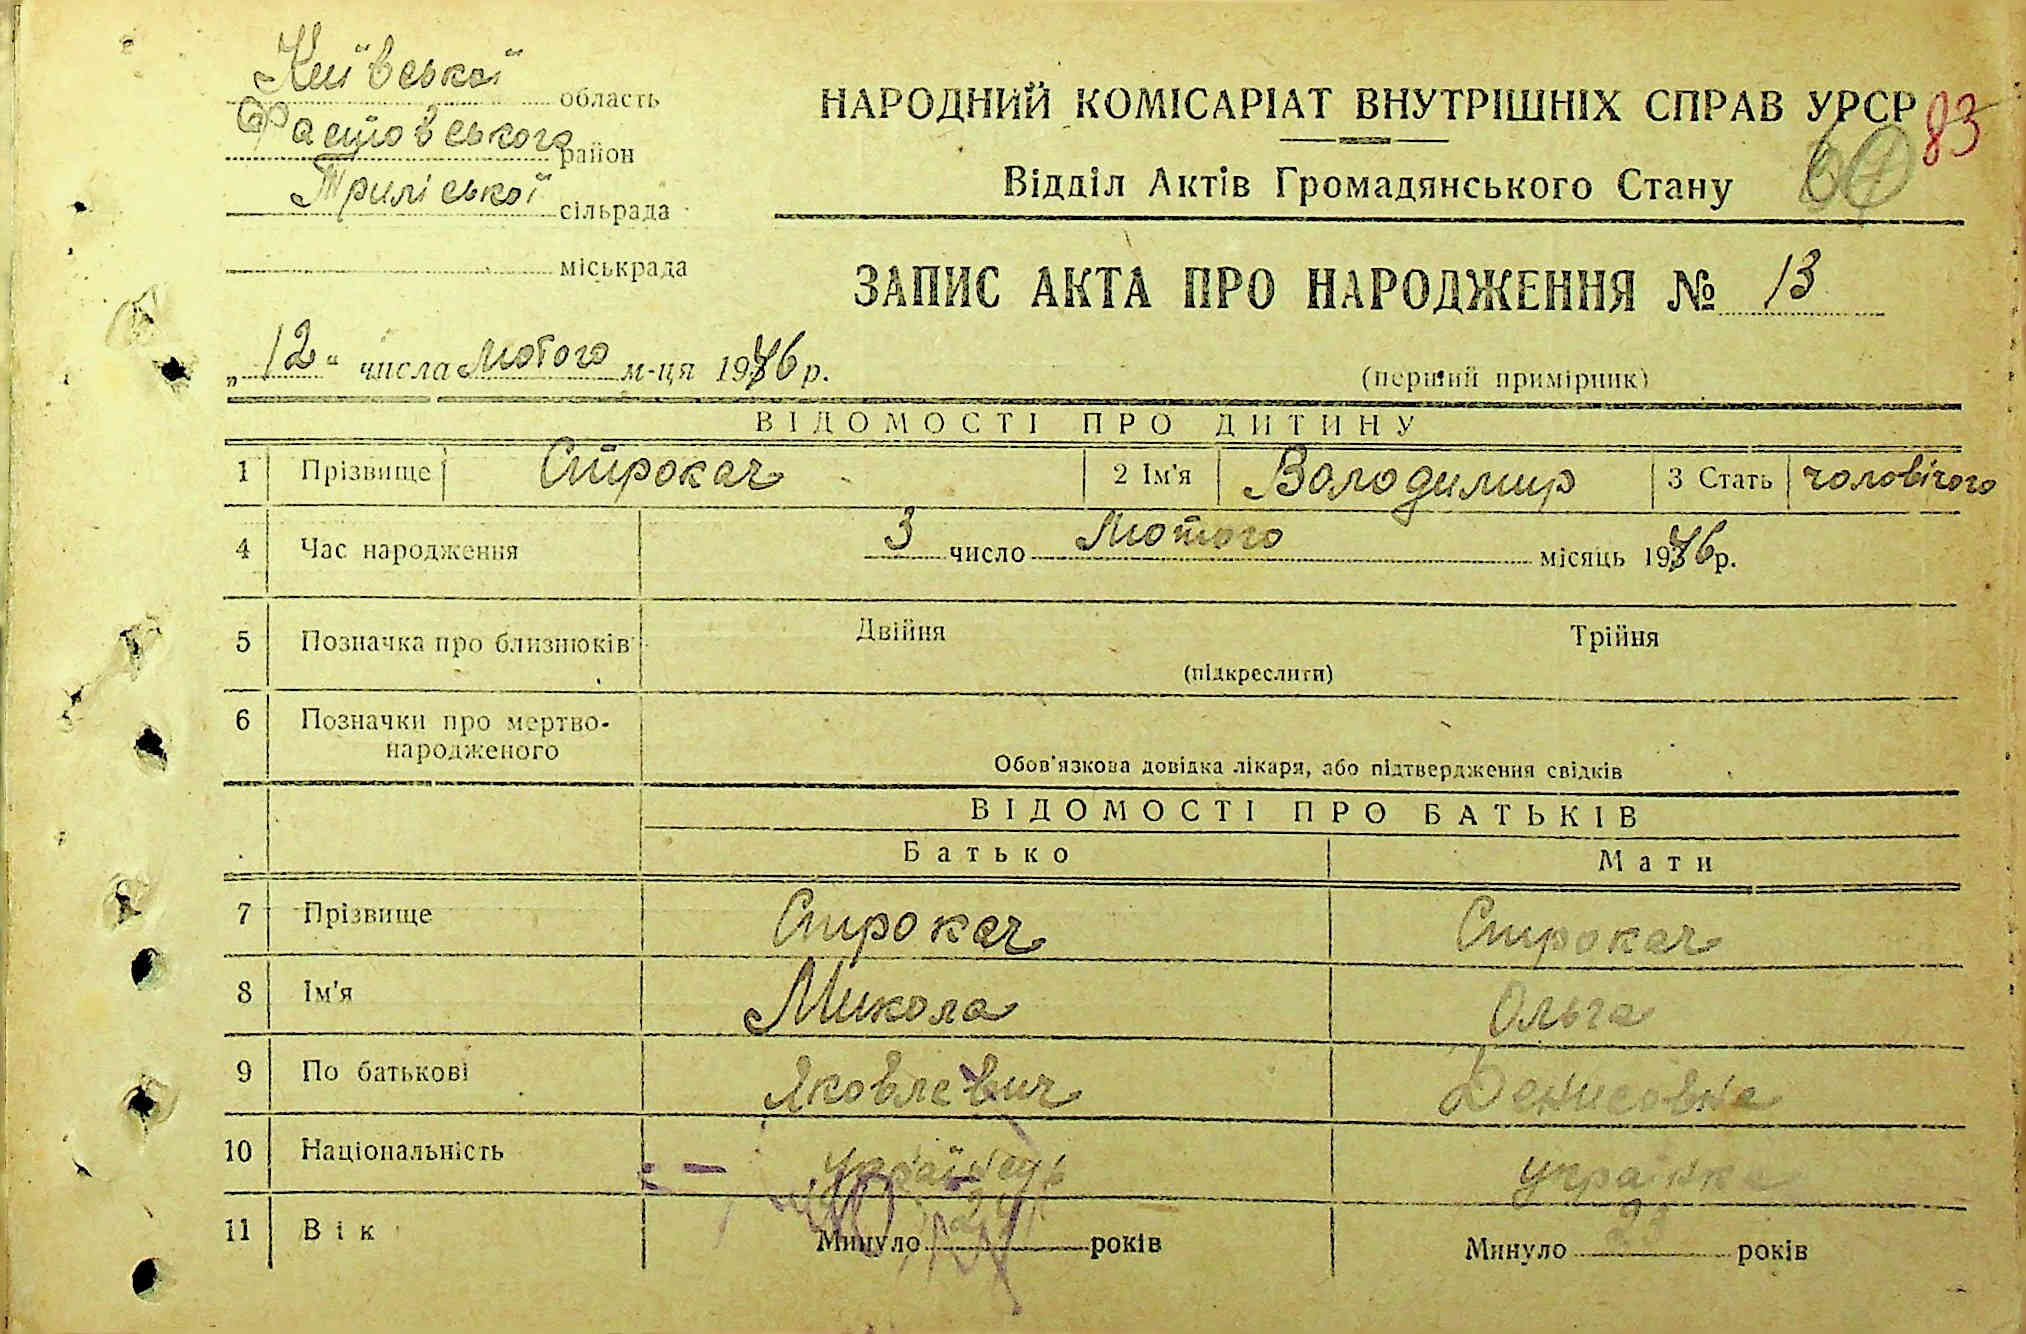 Київської область
Фастовського район
Триліської сільрада
міськрада
НАРОДНИЙ КОМІСАРІАТ ВНУТРІШНІХ СПРАВ УРСР
83
Відділ Актів Громадянського Стану
ЗАПИС АКТА ПРО НАРОДЖЕННЯ № 13
„12“ числа Лютого м-ця 1946 р.
(перший примірник)
ВІДОМОСТІ ПРО ДИТИНУ
1 Прізвище Строкач 2 Ім'я Володимир 3 Стать чоловічого
4 Час народження 3 число Лютого місяць 1946 р.
5 Позначка про близнюків Двійня Трійня
(підкреслити)
6 Позначки про мертво-
народженого
Обов'язкова довідка лікаря, або підтвердження свідків
ВІДОМОСТІ ПРО БАТЬКІВ
Батько Мати
7 Прізвище Строкач Строкач
8 Ім'я Микола Ольга
9 По батькові Яковлевич Денисовна
10 Національність українець українка
11 Вік Минуло років Минуло 23 років